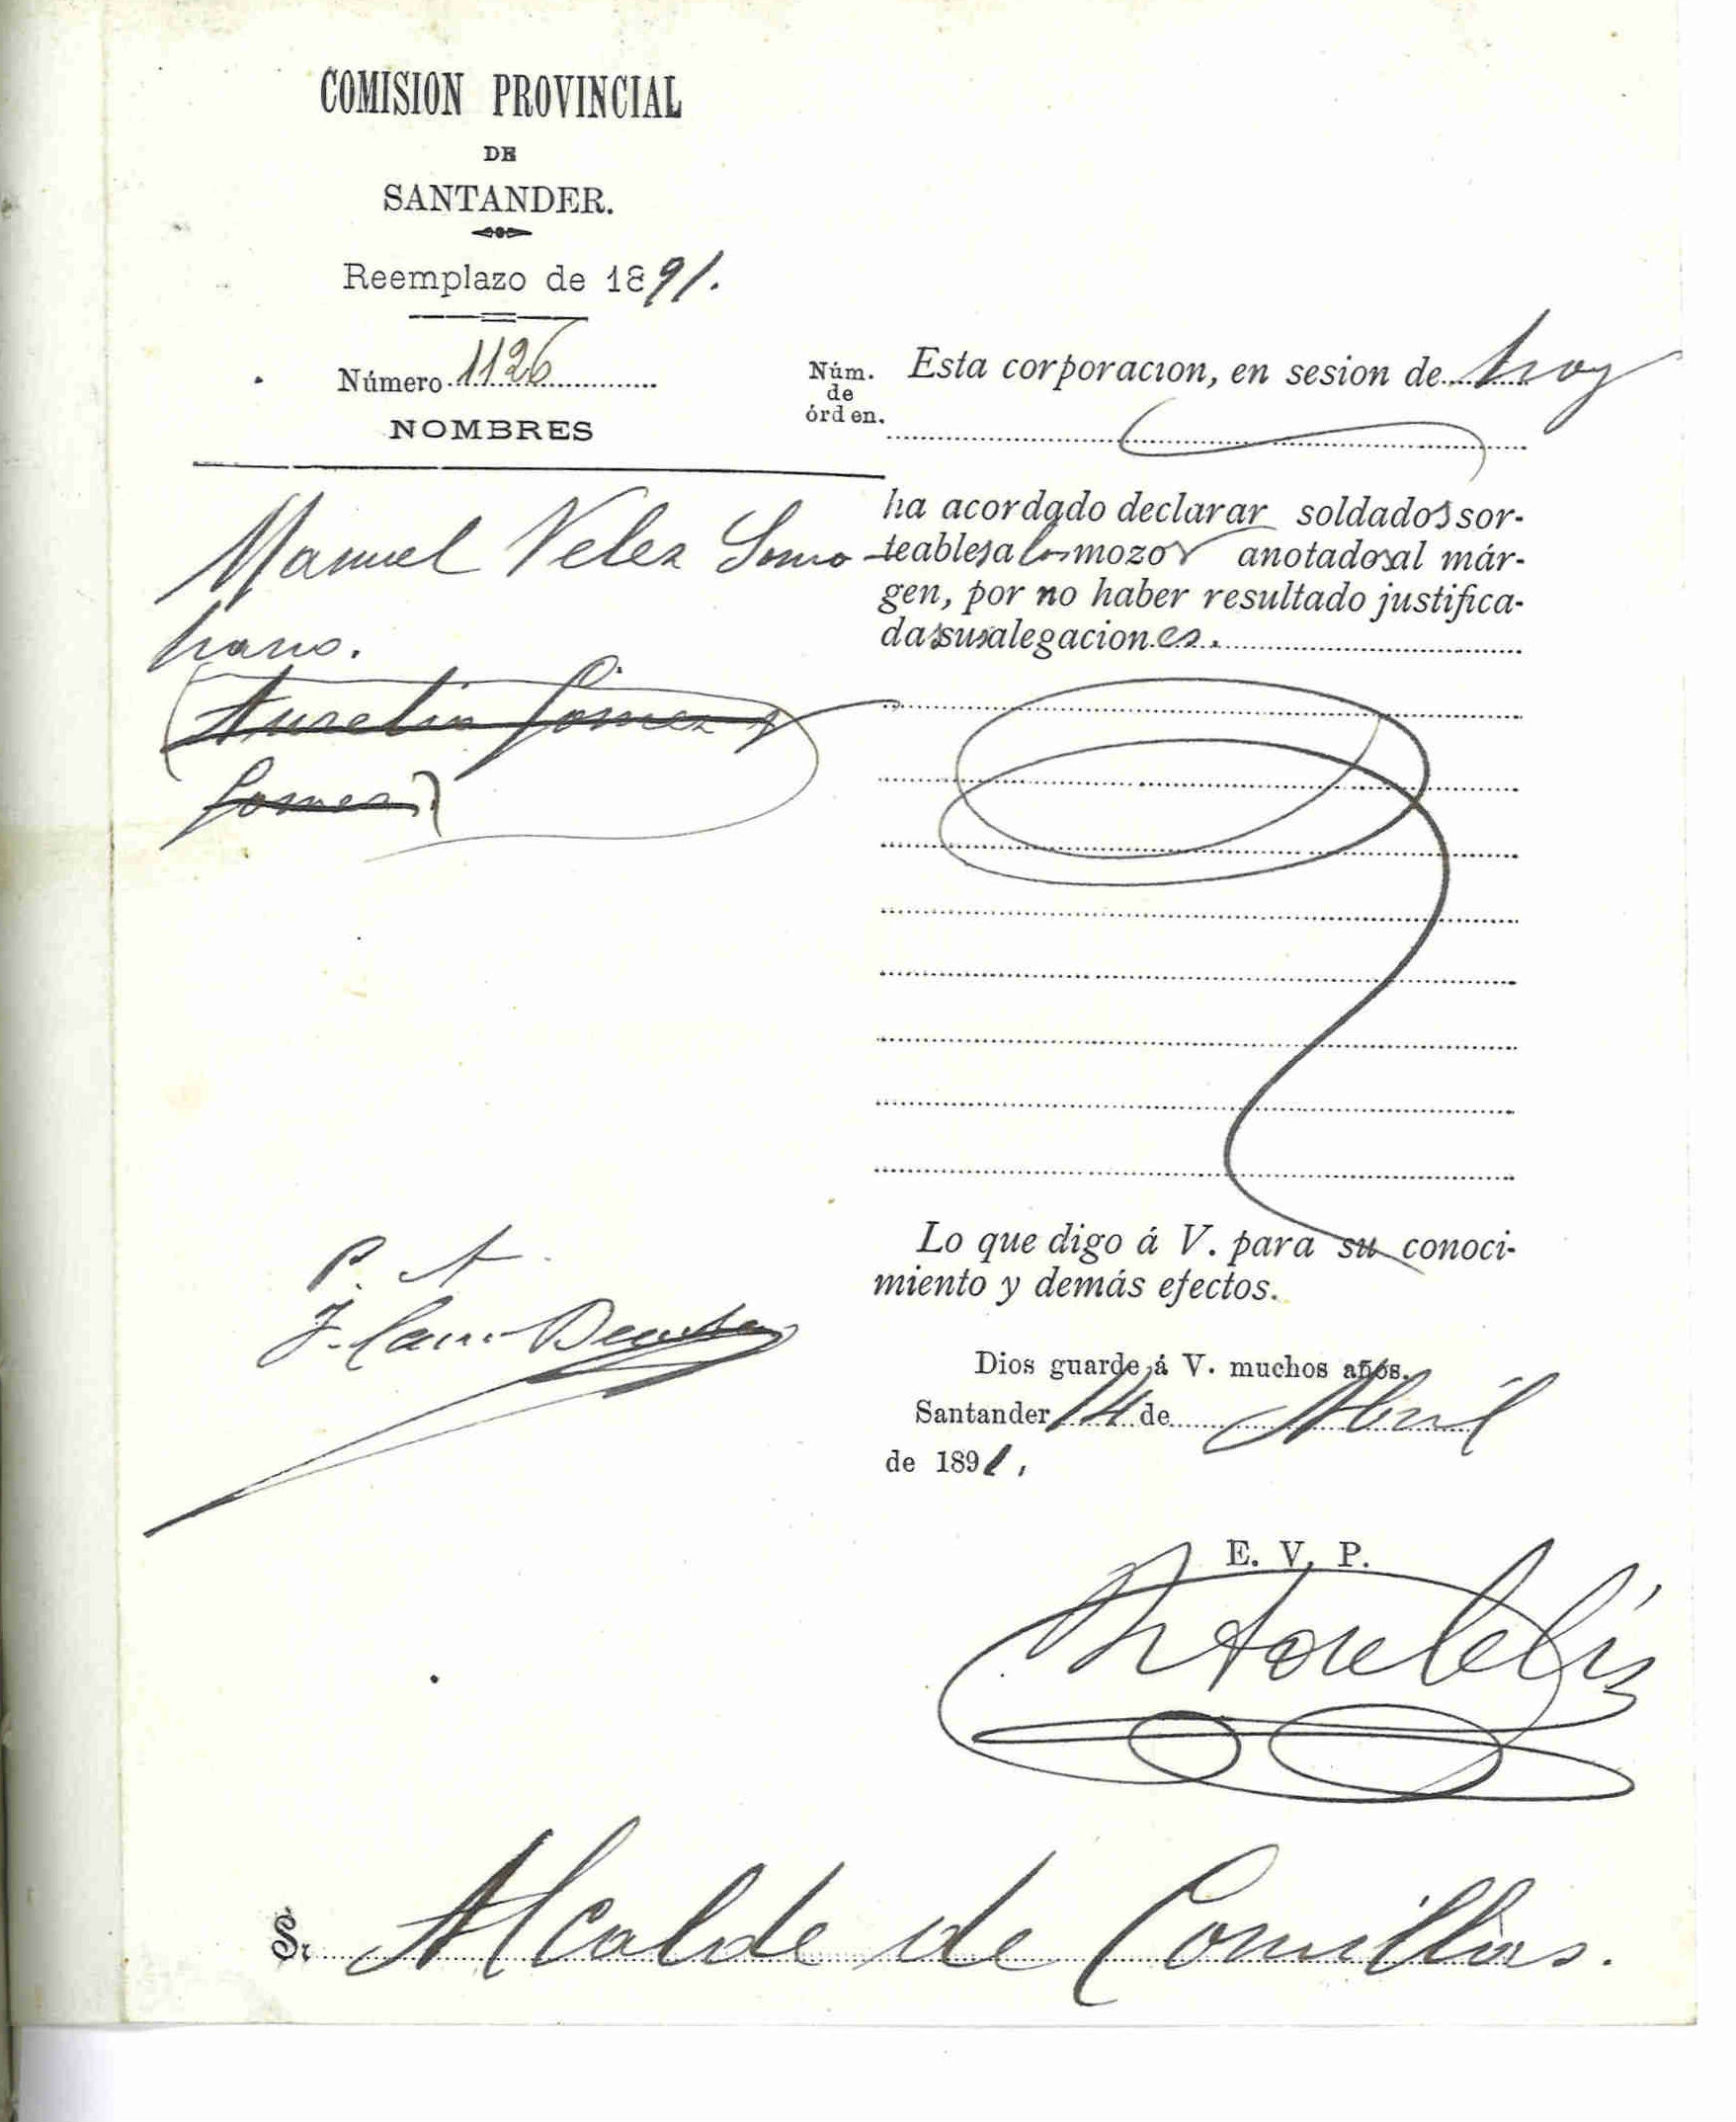 COMISION PROVINCIAL
DE
SANTANDER.
Reemplazo de 1891.
Número 1126
NOMBRES
Núm.
de
órden.
Manuel Velez Somo
hano.
Aurelio Gomez y
Gomez
P. A.
Esta corporacion, en sesion de hoy
ha acordado declarar soldados sor-
teables a los mozos anotados al már-
gen, por no haber resultado justifica-
das sus alegaciones.
Lo que digo á V. para su conoci-
miento y demás efectos.
Dios guarde á V. muchos años.
Santander 14 de Abril
de 1891.
E. V. P.
Sr. Alcalde de Comillas.